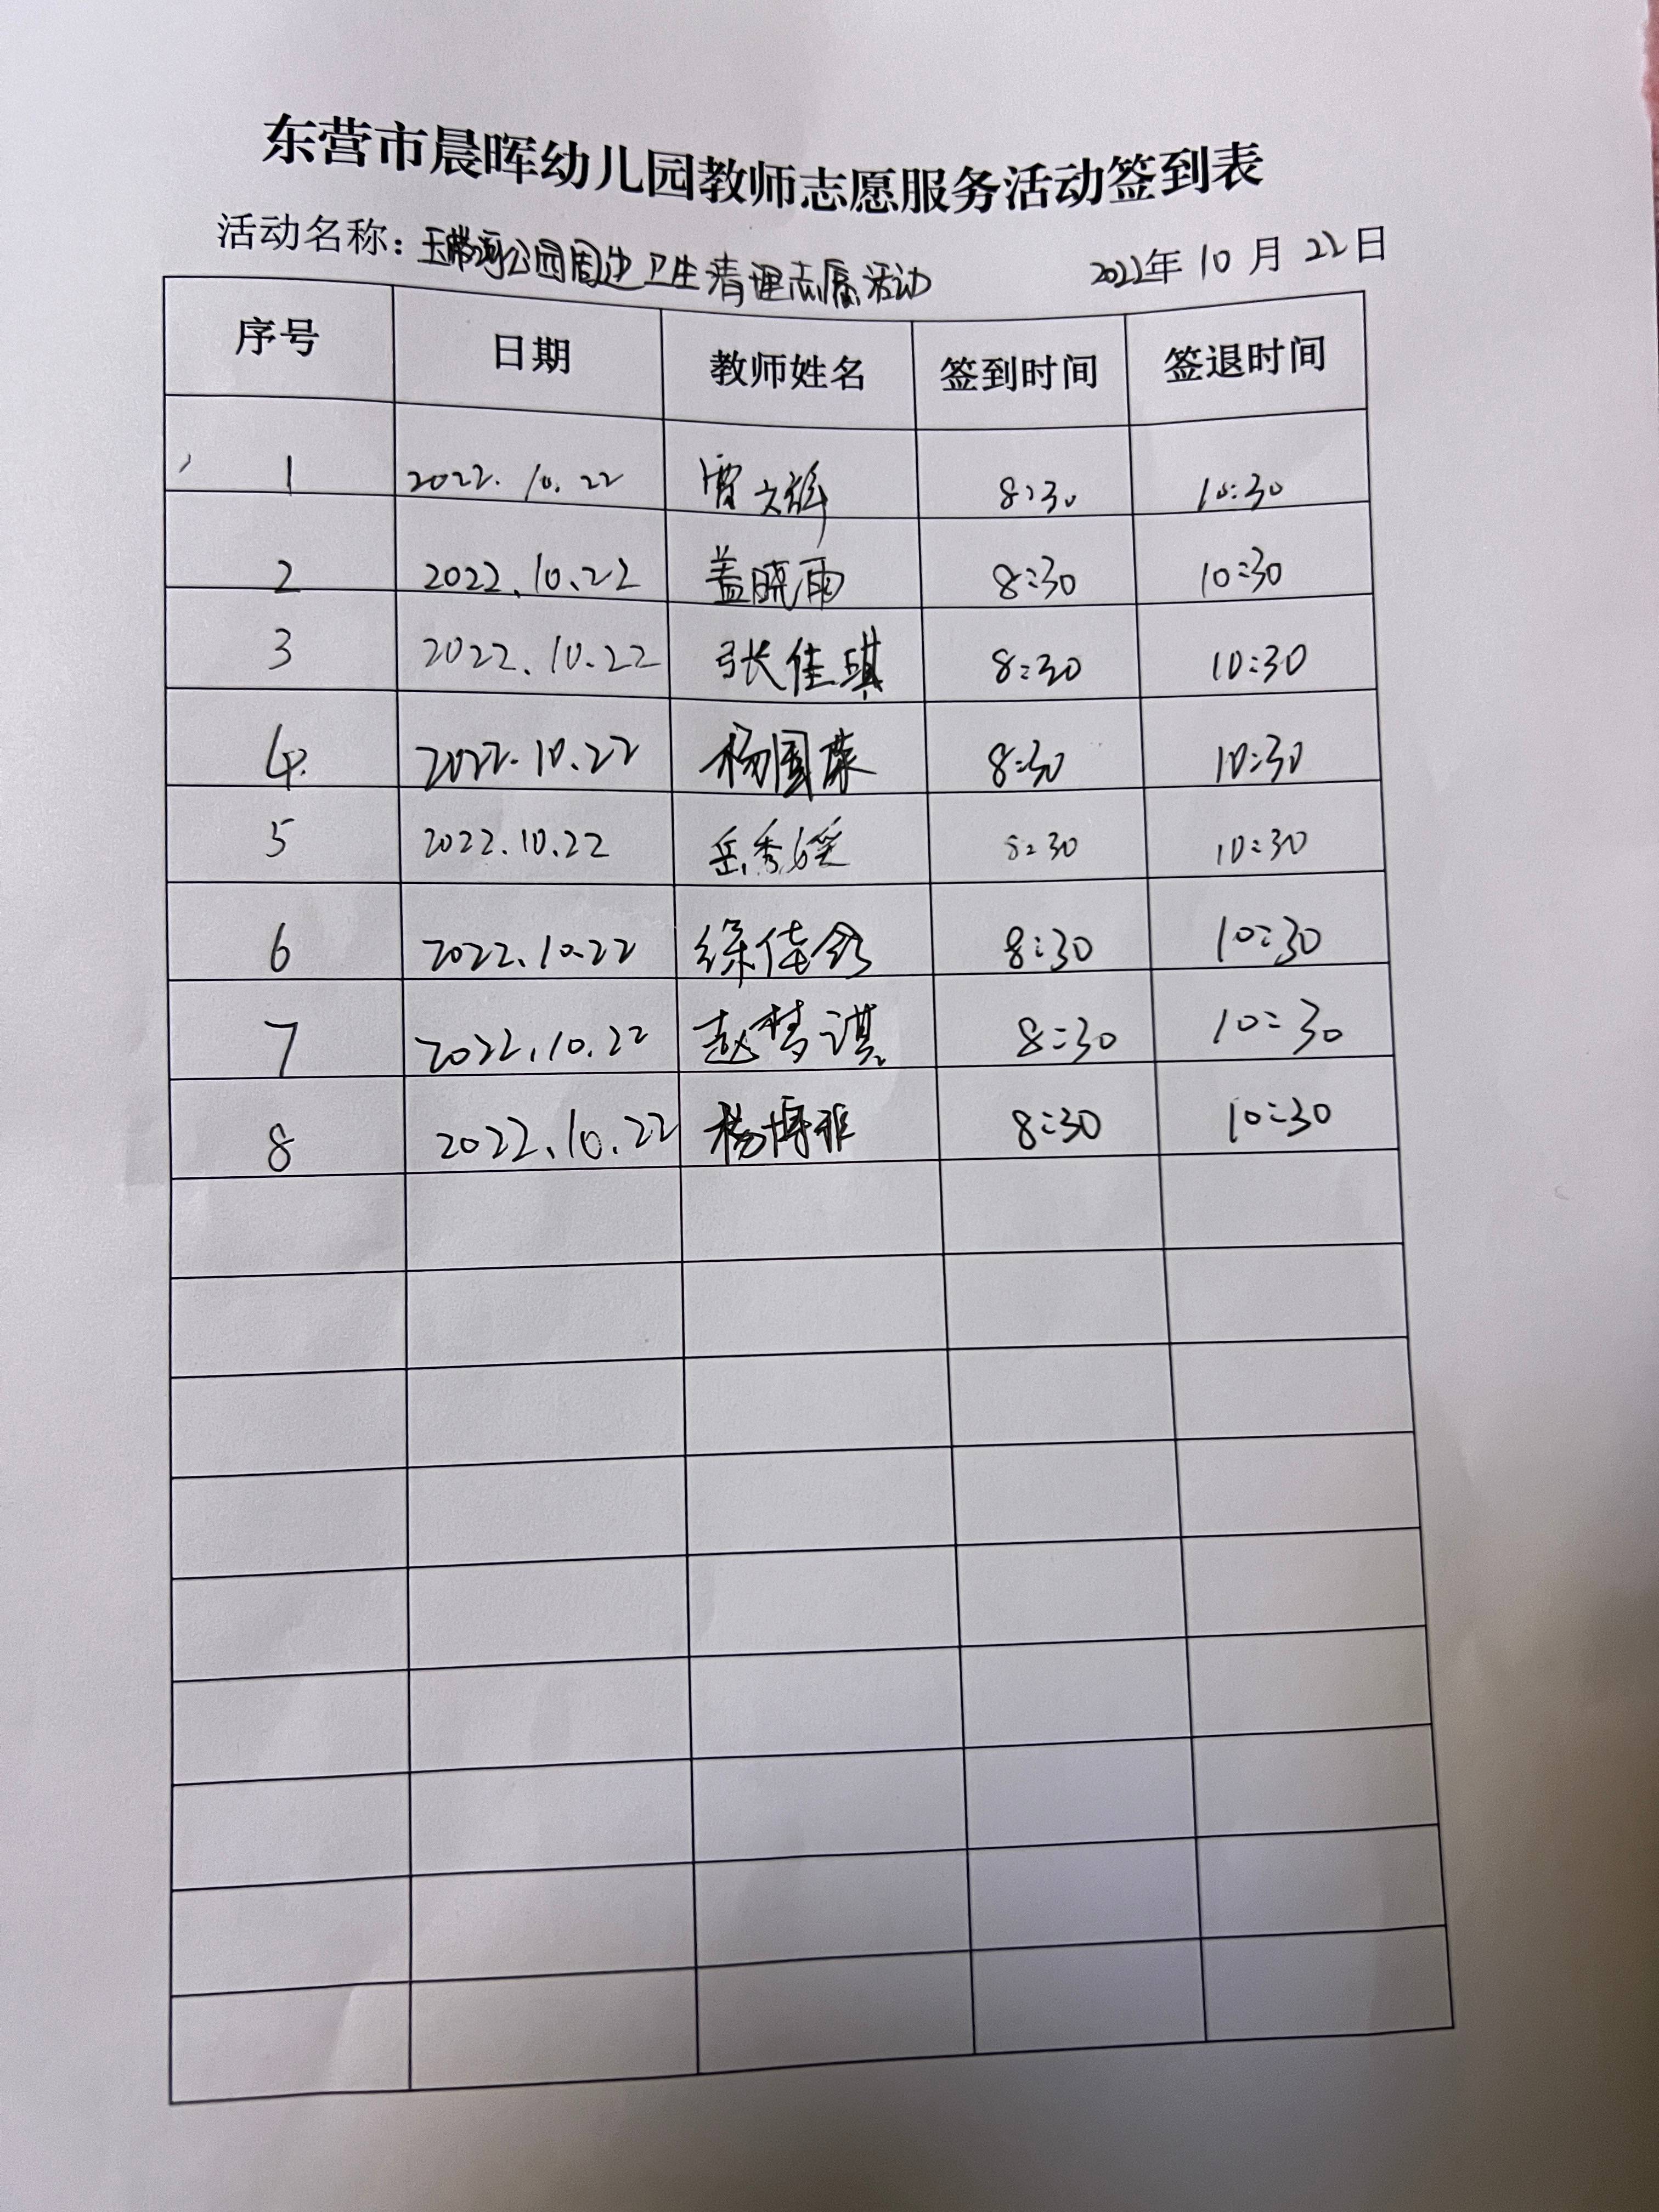 东营市晨晖幼儿园教师志愿服务活动签到表
活动名称：玉带河公园周边卫生清理志愿活动 2022年 10 月 22 日
序号 日期 教师姓名 签到时间 签退时间
1 2022.10.22 文 8:30 10:30
2 2022.10.22 盖晓雨 8:30 10:30
3 2022.10.22 张佳琪 8:30 10:30
4. 2022.10.22 杨国荣 8:30 10:30
5 2022.10.22 岳秀 8:30 10:30
6 2022.10.22 徐佳 8:30 10:30
7 2022.10.22 赵梦淇 8:30 10:30
8 2022.10.22 杨博雅 8:30 10:30